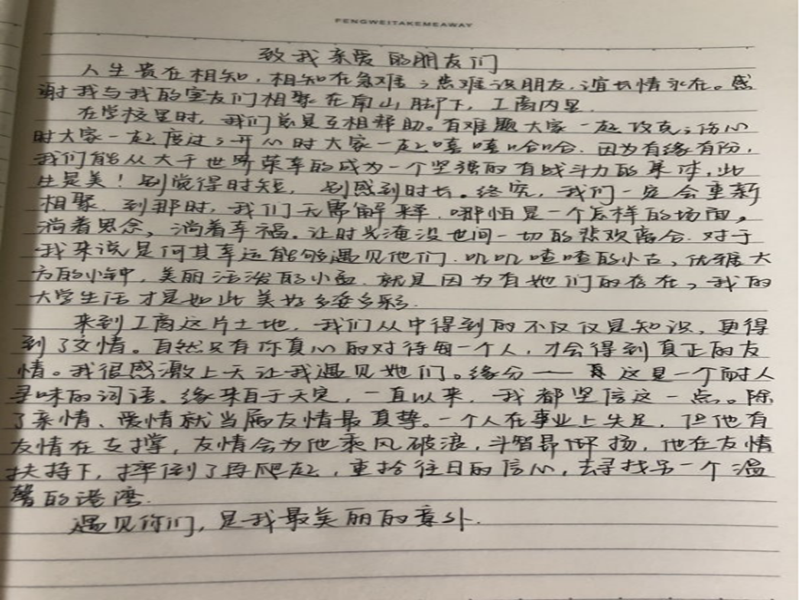 FENGWEITAKEMEAWAY
致我亲爱的朋友们
人生贵在相知，相知在急难；患难识朋友，谊长情永在。感
谢我与我的室友们相聚在南山脚下，工商内里
在学校里时，我们总是互相帮助。有难题大家一起攻克；伤心
时大家一起度过；开心时大家一起嘻嘻哈哈。因为有缘有份，
我们能从大千世界荣幸的成为一个坚强的有战斗力的集体，此
生是美！别觉得时短，别感到时长。终究，我们一定会重新
相聚。到那时，我们无需解释，哪怕是一个怎样的场面，
淌着思念，淌着幸福。让时光淹没世间一切的悲欢离合。对于
我来说是何其幸运能够遇见他们。叽叽喳喳的小古，优雅大
方的小钟，美丽活泼的小孟。就是因为有她们的存在，我的
大学生活才是如此美好多姿多彩。
来到工商这片土地，我们从中得到的不仅仅是知识，更得
到了友情。自然只有你真心的对待每一个人，才会得到真正的友
情。我很感激上天让我遇见她们。缘分——这是一个耐人
寻味的词语。缘来自于天定，一直以来，我都坚信这一点。除
了亲情、爱情就当属友情最真挚。一个人在事业上失足，但他有
友情在支撑，友情会为他乘风破浪，斗智昂扬，他在友情
扶持下，摔倒了再爬起，重拾往日的信心，去寻找另一个温
馨的港湾。
遇见你们，是我最美丽的意外。